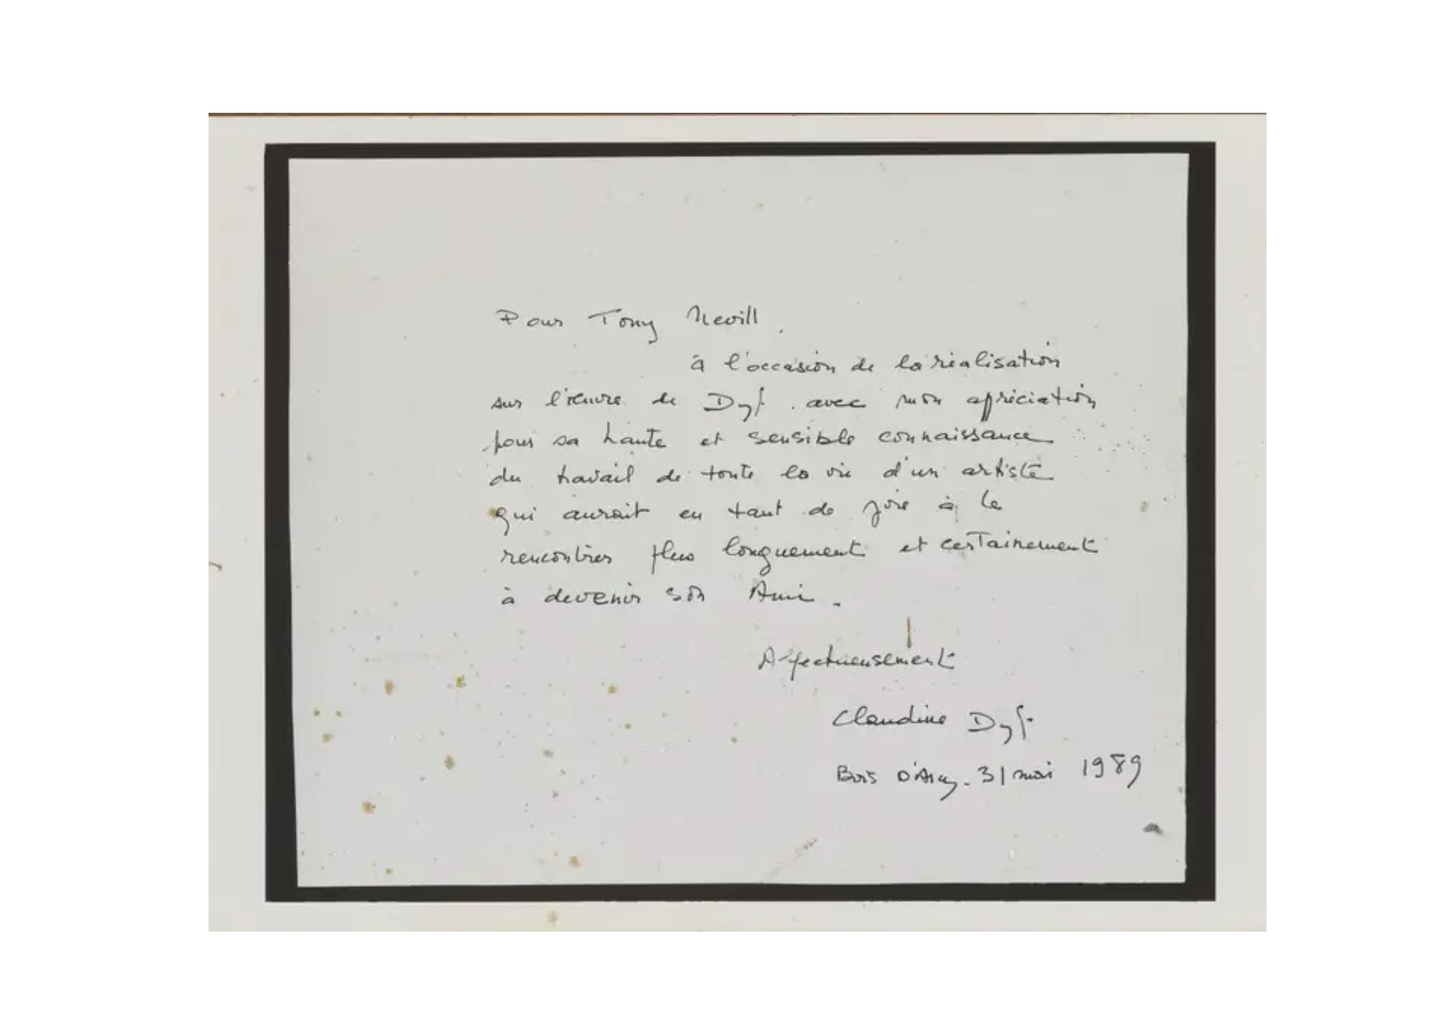 Pour Tony Nevill,
à l'occasion de la réalisation
sur l'œuvre de Dyf. avec mon apréciation
pour sa haute et sensible connaissance
du travail de toute la vie d'un artiste
qui aurait eu tant de joie à le
rencontrer plus longuement et certainement
à devenir son Ami.
Affectueusement
Claudine Dyf.
Bois D'Arcy. 31 mai 1989